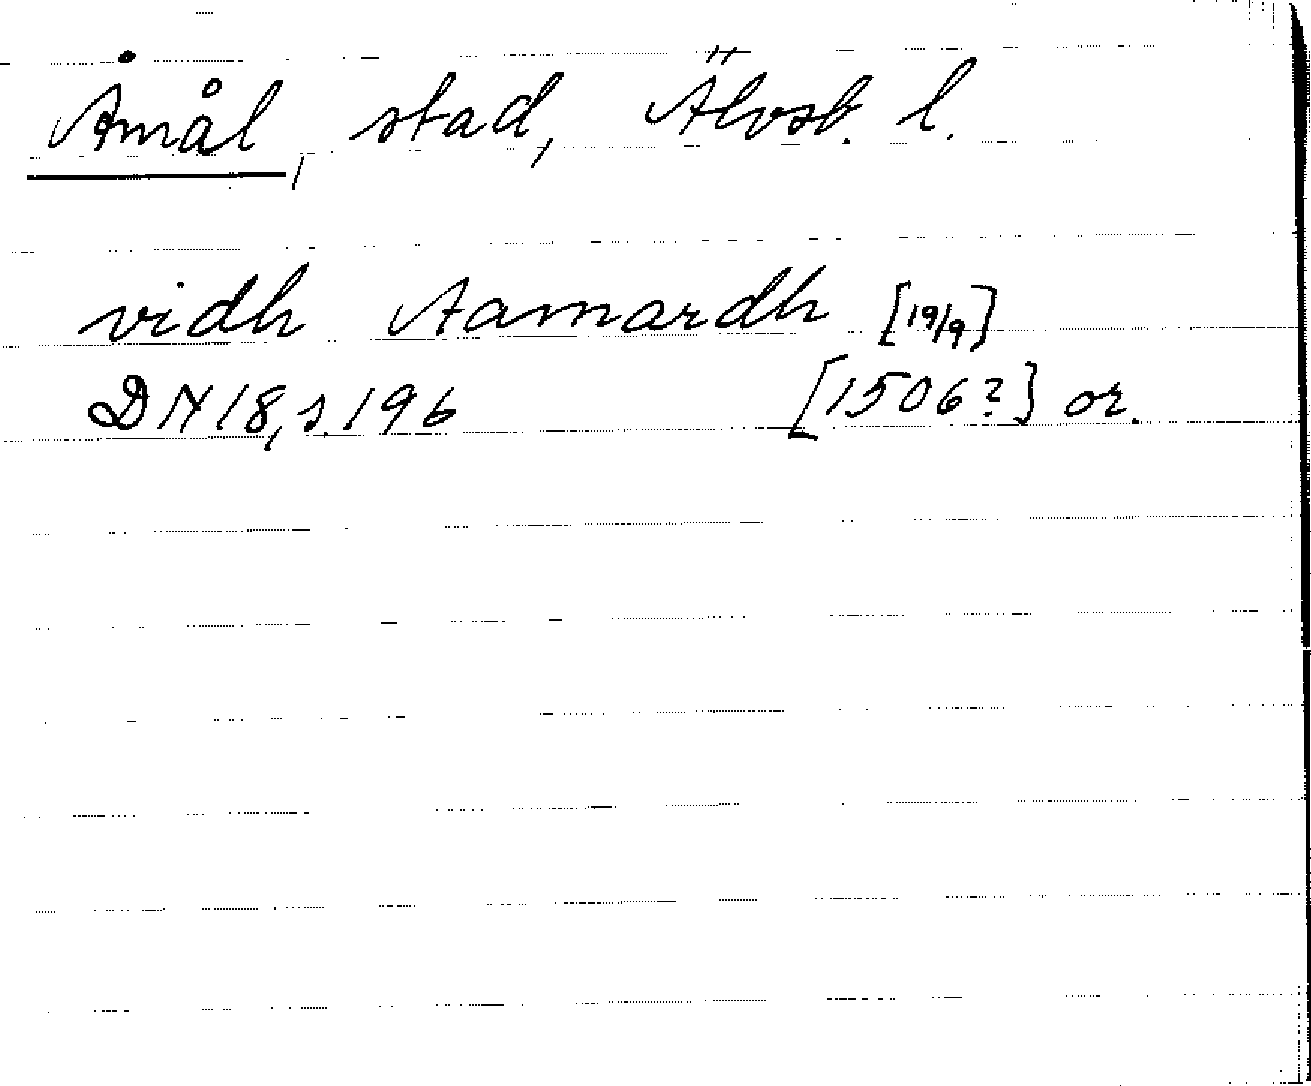 Åmål, stad, Älvsb. l.
vidh Aamardh [19/9]
DN 18, s. 196 [1506?] or.